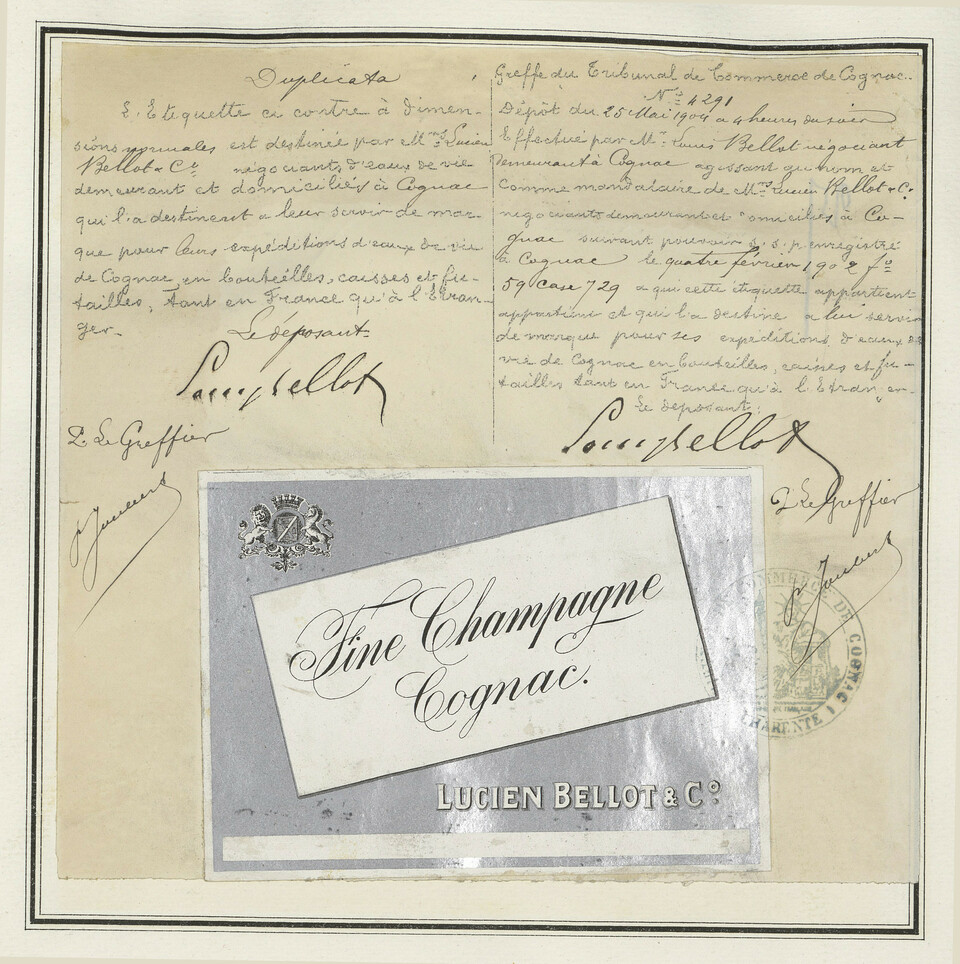 Duplicata
L'Etiquette ci contre à dimen-
sions normales est destinée par MMrs Lucien
Bellot & Co négociants d'eaux de vie
demeurant et domiciliés à Cognac
qui l'a destinent a leur servir de mar-
que pour leurs expéditions d'eaux de vie
de Cognac en bouteilles, caisses et fu-
tailles, tant en France qu'à l'Etran-
ger.
Le déposant
Louis Bellot
P. Le Greffier
P Joubert
Greffe du Tribunal de Commerce de Cognac.
No 4291
Dépôt du 25 Mai 1904 a 4 heures du soir
Effectué par Mr Louis Bellot négociant
demeurant à Cognac agissant au nom et
comme mandataire de MMrs Lucien Bellot & Co
négociants demeurant et domiciliés à Co-
gnac suivant pouvoir s.s.p. enregistré
à Cognac le quatre février 1902 fo
59 case 729 a qui cette étiquette appartient
appartient et qui l'a destine a lui servir
de marque pour ses expéditions d'eaux de
vie de Cognac en bouteilles, caisses et fu-
tailles tant en France qu'à l'Etranger
Le déposant:
Louis Bellot
P. Le Greffier
P Joubert
COMMERCE DE COGNAC
CHARENTE
Fine Champagne
Cognac.
LUCIEN BELLOT & Co